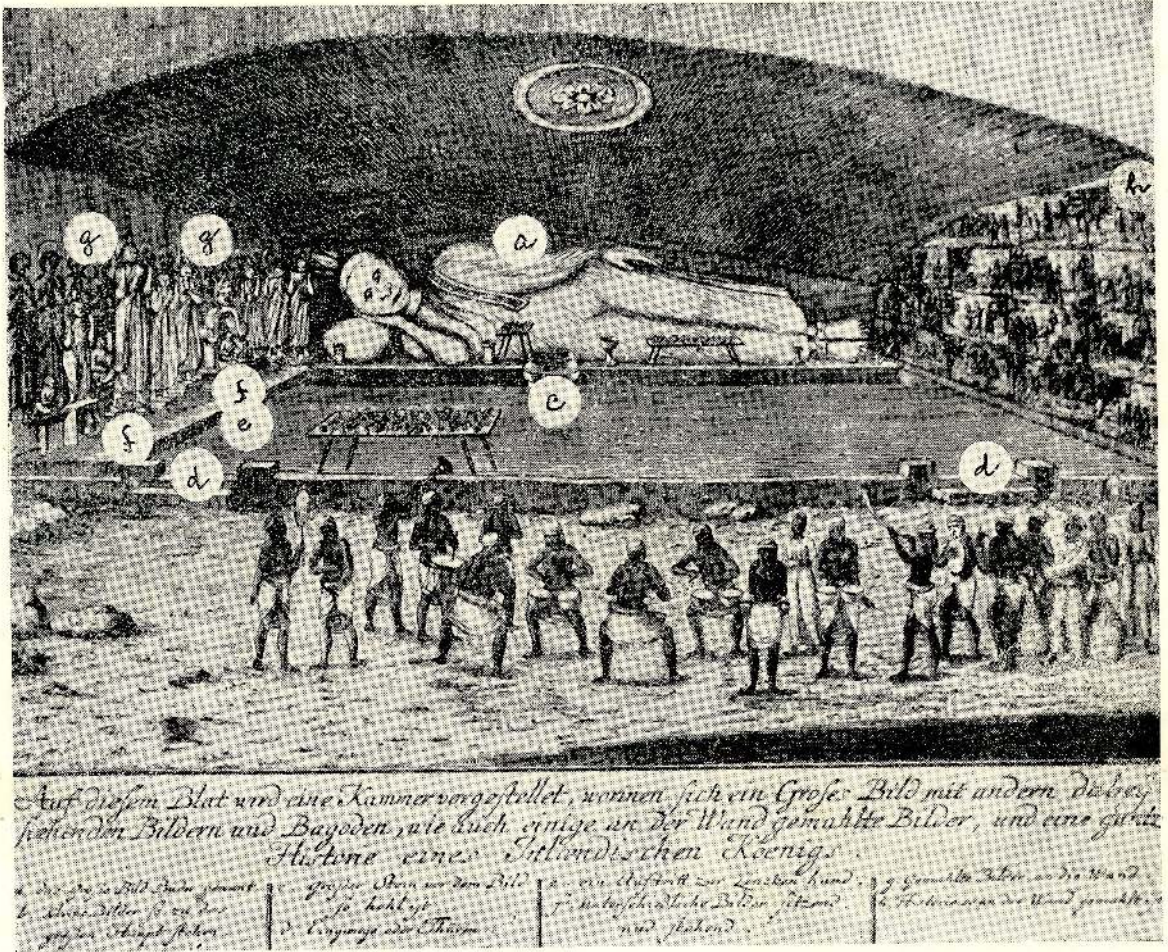 g
g
a
h
f
c
f
e
d
d
Auf diesem Blat wird eine Kammer vorgestellet, worinnen sich ein Groses Bild mit andern dabey
stehenden Bildern und Bagoden, wie auch einige an der Wand gemahlte Bilder, und eine gantz
Historie eines Inlændischen Koenigs.
a. das Bild Budu genant.
b. kleine Bilder so zu des
grosen Haupt stehen.
c. groser Stein vor dem Bild
so hohl ist
d. Eingænge oder Thüren
e. ein Auftritt zur Lincken hand.
f. unterschiedliche Bilder sitzend
und stehend.
g. Gemahlte Bilder an die Wand
h. Historie an der Wand gemahlt